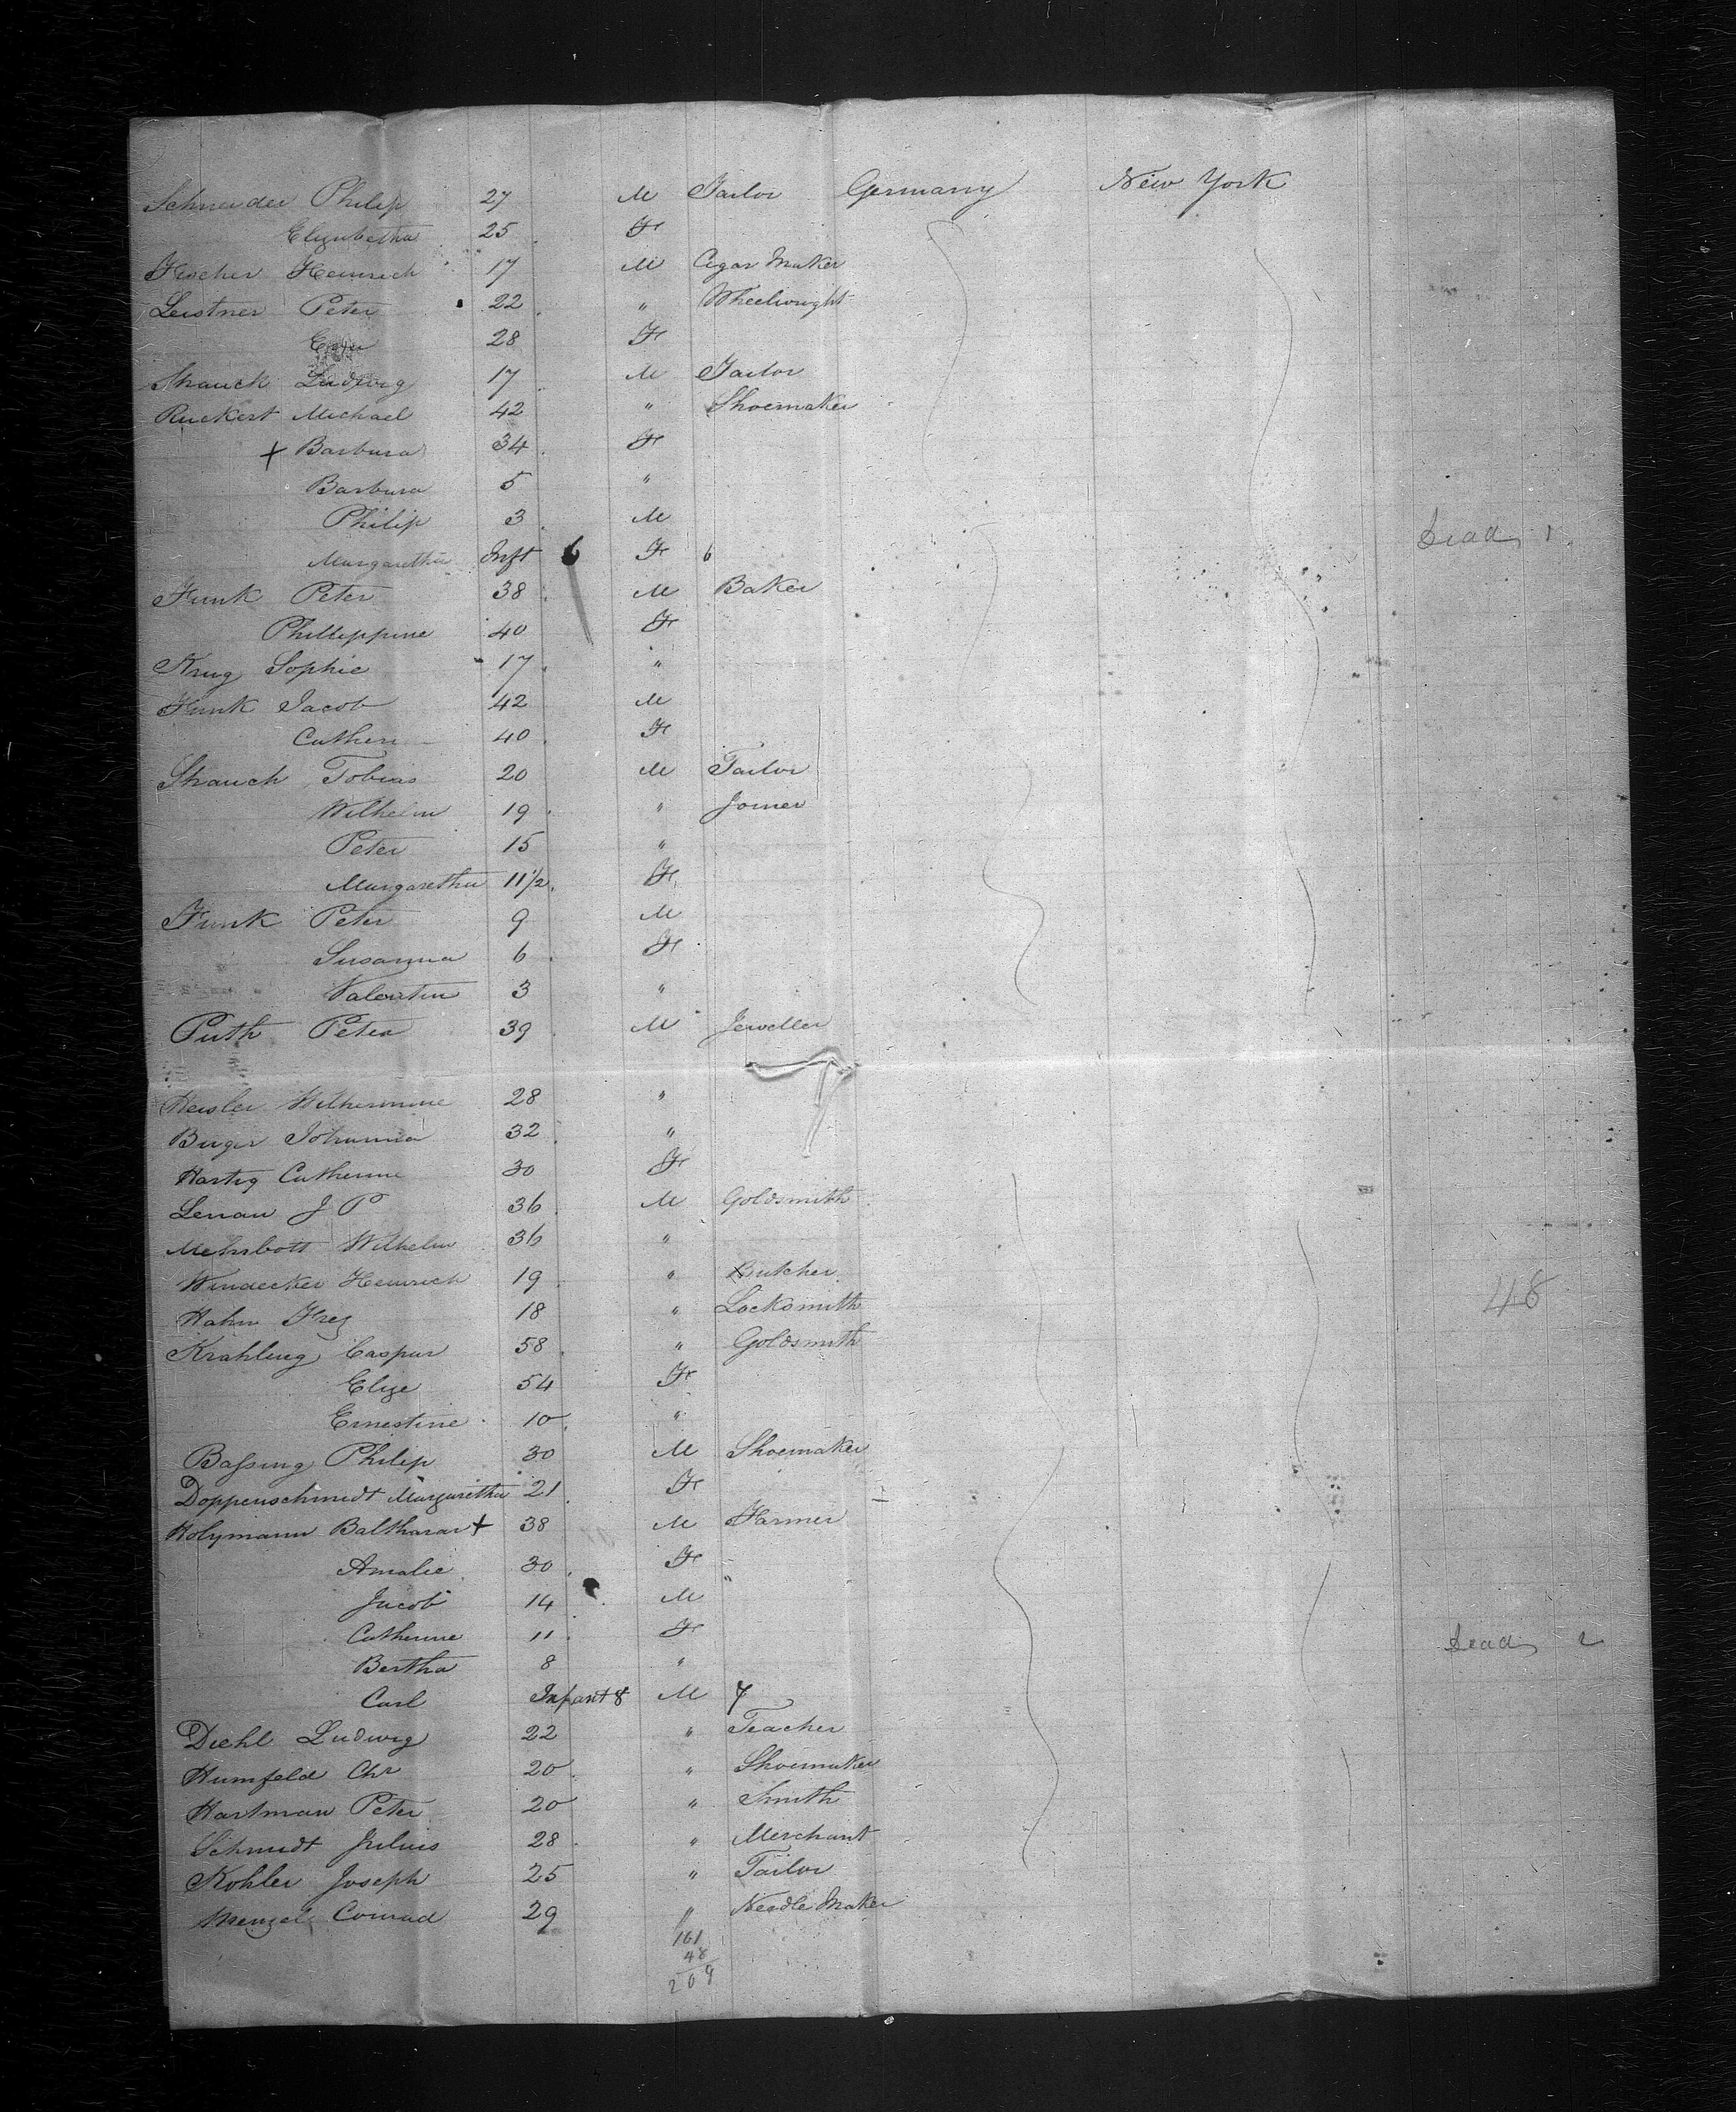 Schneider Philip 27 M Tailor Germany New York
Elizabetha 25 F
Fischer Heinrich 17 M Cigar Maker
Leistner Peter 22 " Wheelwright
Eva 28 F
Strauch Ludwig 17 M Tailor
Ruckert Michael 42 " Shoemaker
+ Barbara 34 F
Barbara 5 "
Philip 3 M
Margaretha Inft 6 F 6 Dead 1
Funk Peter 38 M Baker
Phillippine 40 F
Krug Sophie 17 "
Funk Jacob 42 M
Cather 40 F
Strauch Tobias 20 M Tailor
Wilhelm 19 " Joiner
Peter 15 "
Margaretha 11 1/2 F
Funk Peter 9 M
Susanna 6 F
Valentin 3 "
Puth Peter 39 M Jeweller
Heisler Wilhermine 28 "
Buger Johanna 32 "
Hartig Catherine 30 F
Lenau J P 36 M Goldsmith
Mehrbott Wilhelm 36 "
Windecker Heinrich 19 " Butcher
Hahn Frez 18 " Locksmith
48
Krahling Caspar 58 " Goldsmith
Elize 54 F
Ernestine 10 "
Baſsing Philip 30 M Shoemaker
Doppenschmidt Margaretha 21 F
Holymann Balthasar + 38 M Farmer
Amalie 30 F "
Jacob 14 M
Catherine 11 F Dead 2
Bertha 8 "
Carl Infant 8 M 7
Diehl Ludwig 22 " Teacher
Humfeld Chr 20 " Shoemaker
Hartman Peter 20 " Smith
Schmidt Julius 28 " Merchant
Kohler Joseph 25 " Tailor
Menzel Conrad 29 " Needle Maker
161
48
209